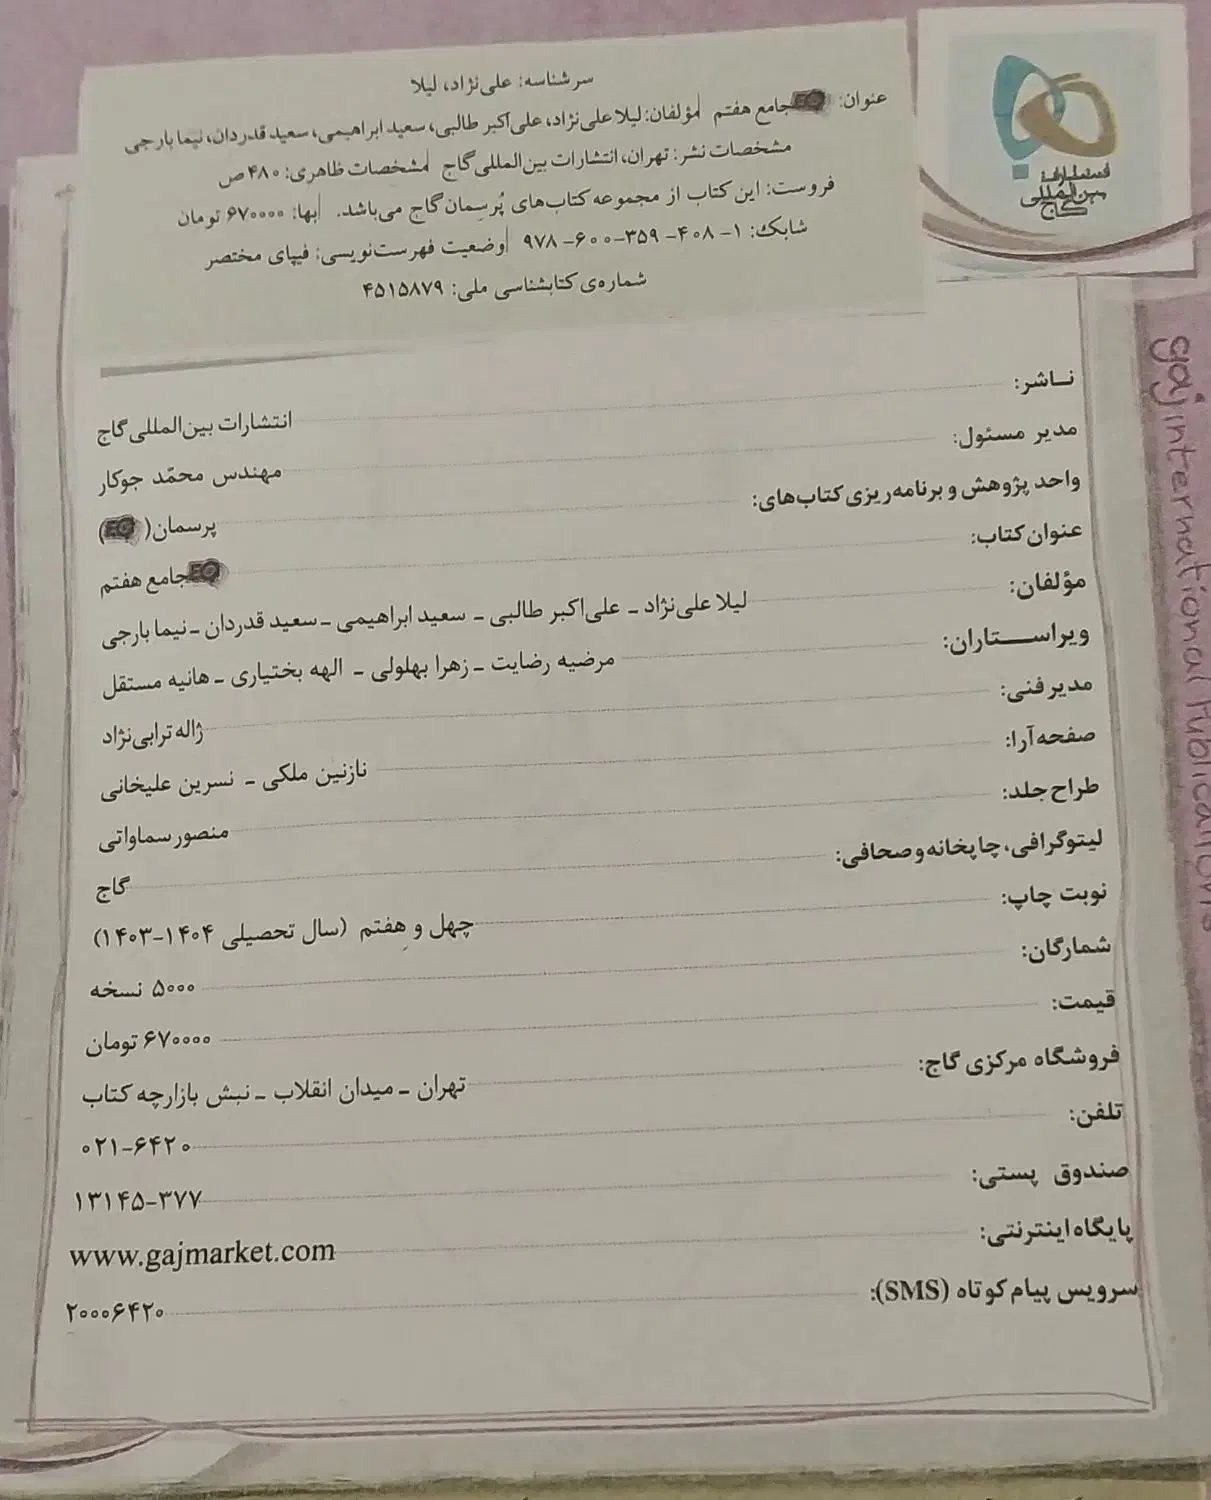 سرشناسه: علی‌نژاد، لیلا
عنوان: EQ جامع هفتم مؤلفان: لیلا علی‌نژاد، علی‌اکبر طالبی، سعید ابراهیمی، سعید قدردان، نیما بارجی
مشخصات نشر: تهران، انتشارات بین‌المللی گاج مشخصات ظاهری: ۴۸۰ ص
فروست: این کتاب از مجموعه کتاب‌های پُرسِمان گاج می‌باشد. بها: ۶۷۰۰۰۰ تومان
شابک: ۱- ۴۰۸- ۳۵۹-۶۰۰- ۹۷۸ وضعیت فهرست‌نویسی: فیپای مختصر
شماره‌ی کتابشناسی ملی: ۴۵۱۵۸۷۹
انتشارات
بین‌المللی
گاج
ناشر: انتشارات بین‌المللی گاج
مدیر مسئول: مهندس محمّد جوکار
واحد پژوهش و برنامه‌ریزی کتاب‌های: پرسمان( EQ )
عنوان کتاب: EQ جامع هفتم
مؤلفان: لیلا علی‌نژاد ـ علی‌اکبر طالبی ـ سعید ابراهیمی ـ سعید قدردان ـ نیما بارجی
ویراستاران: مرضیه رضایت ـ زهرا بهلولی ـ الهه بختیاری ـ هانیه مستقل
مدیر فنی: ژاله ترابی‌نژاد
صفحه‌آرا: نازنین ملکی ـ نسرین علیخانی
طراح جلد: منصور سماواتی
لیتوگرافی، چاپخانه و صحافی: گاج
نوبت چاپ: چهل و هفتم (سال تحصیلی ۱۴۰۴-۱۴۰۳)
شمارگان: ۵۰۰۰ نسخه
قیمت: ۶۷۰۰۰۰ تومان
فروشگاه مرکزی گاج: تهران ـ میدان انقلاب ـ نبش بازارچه کتاب
تلفن: ۰۲۱-۶۴۲۰
صندوق پستی: ۱۳۱۴۵-۳۷۷
پایگاه اینترنتی: www.gajmarket.com
سرویس پیام کوتاه (SMS): ۲۰۰۰۶۴۲۰
gaj international Publications